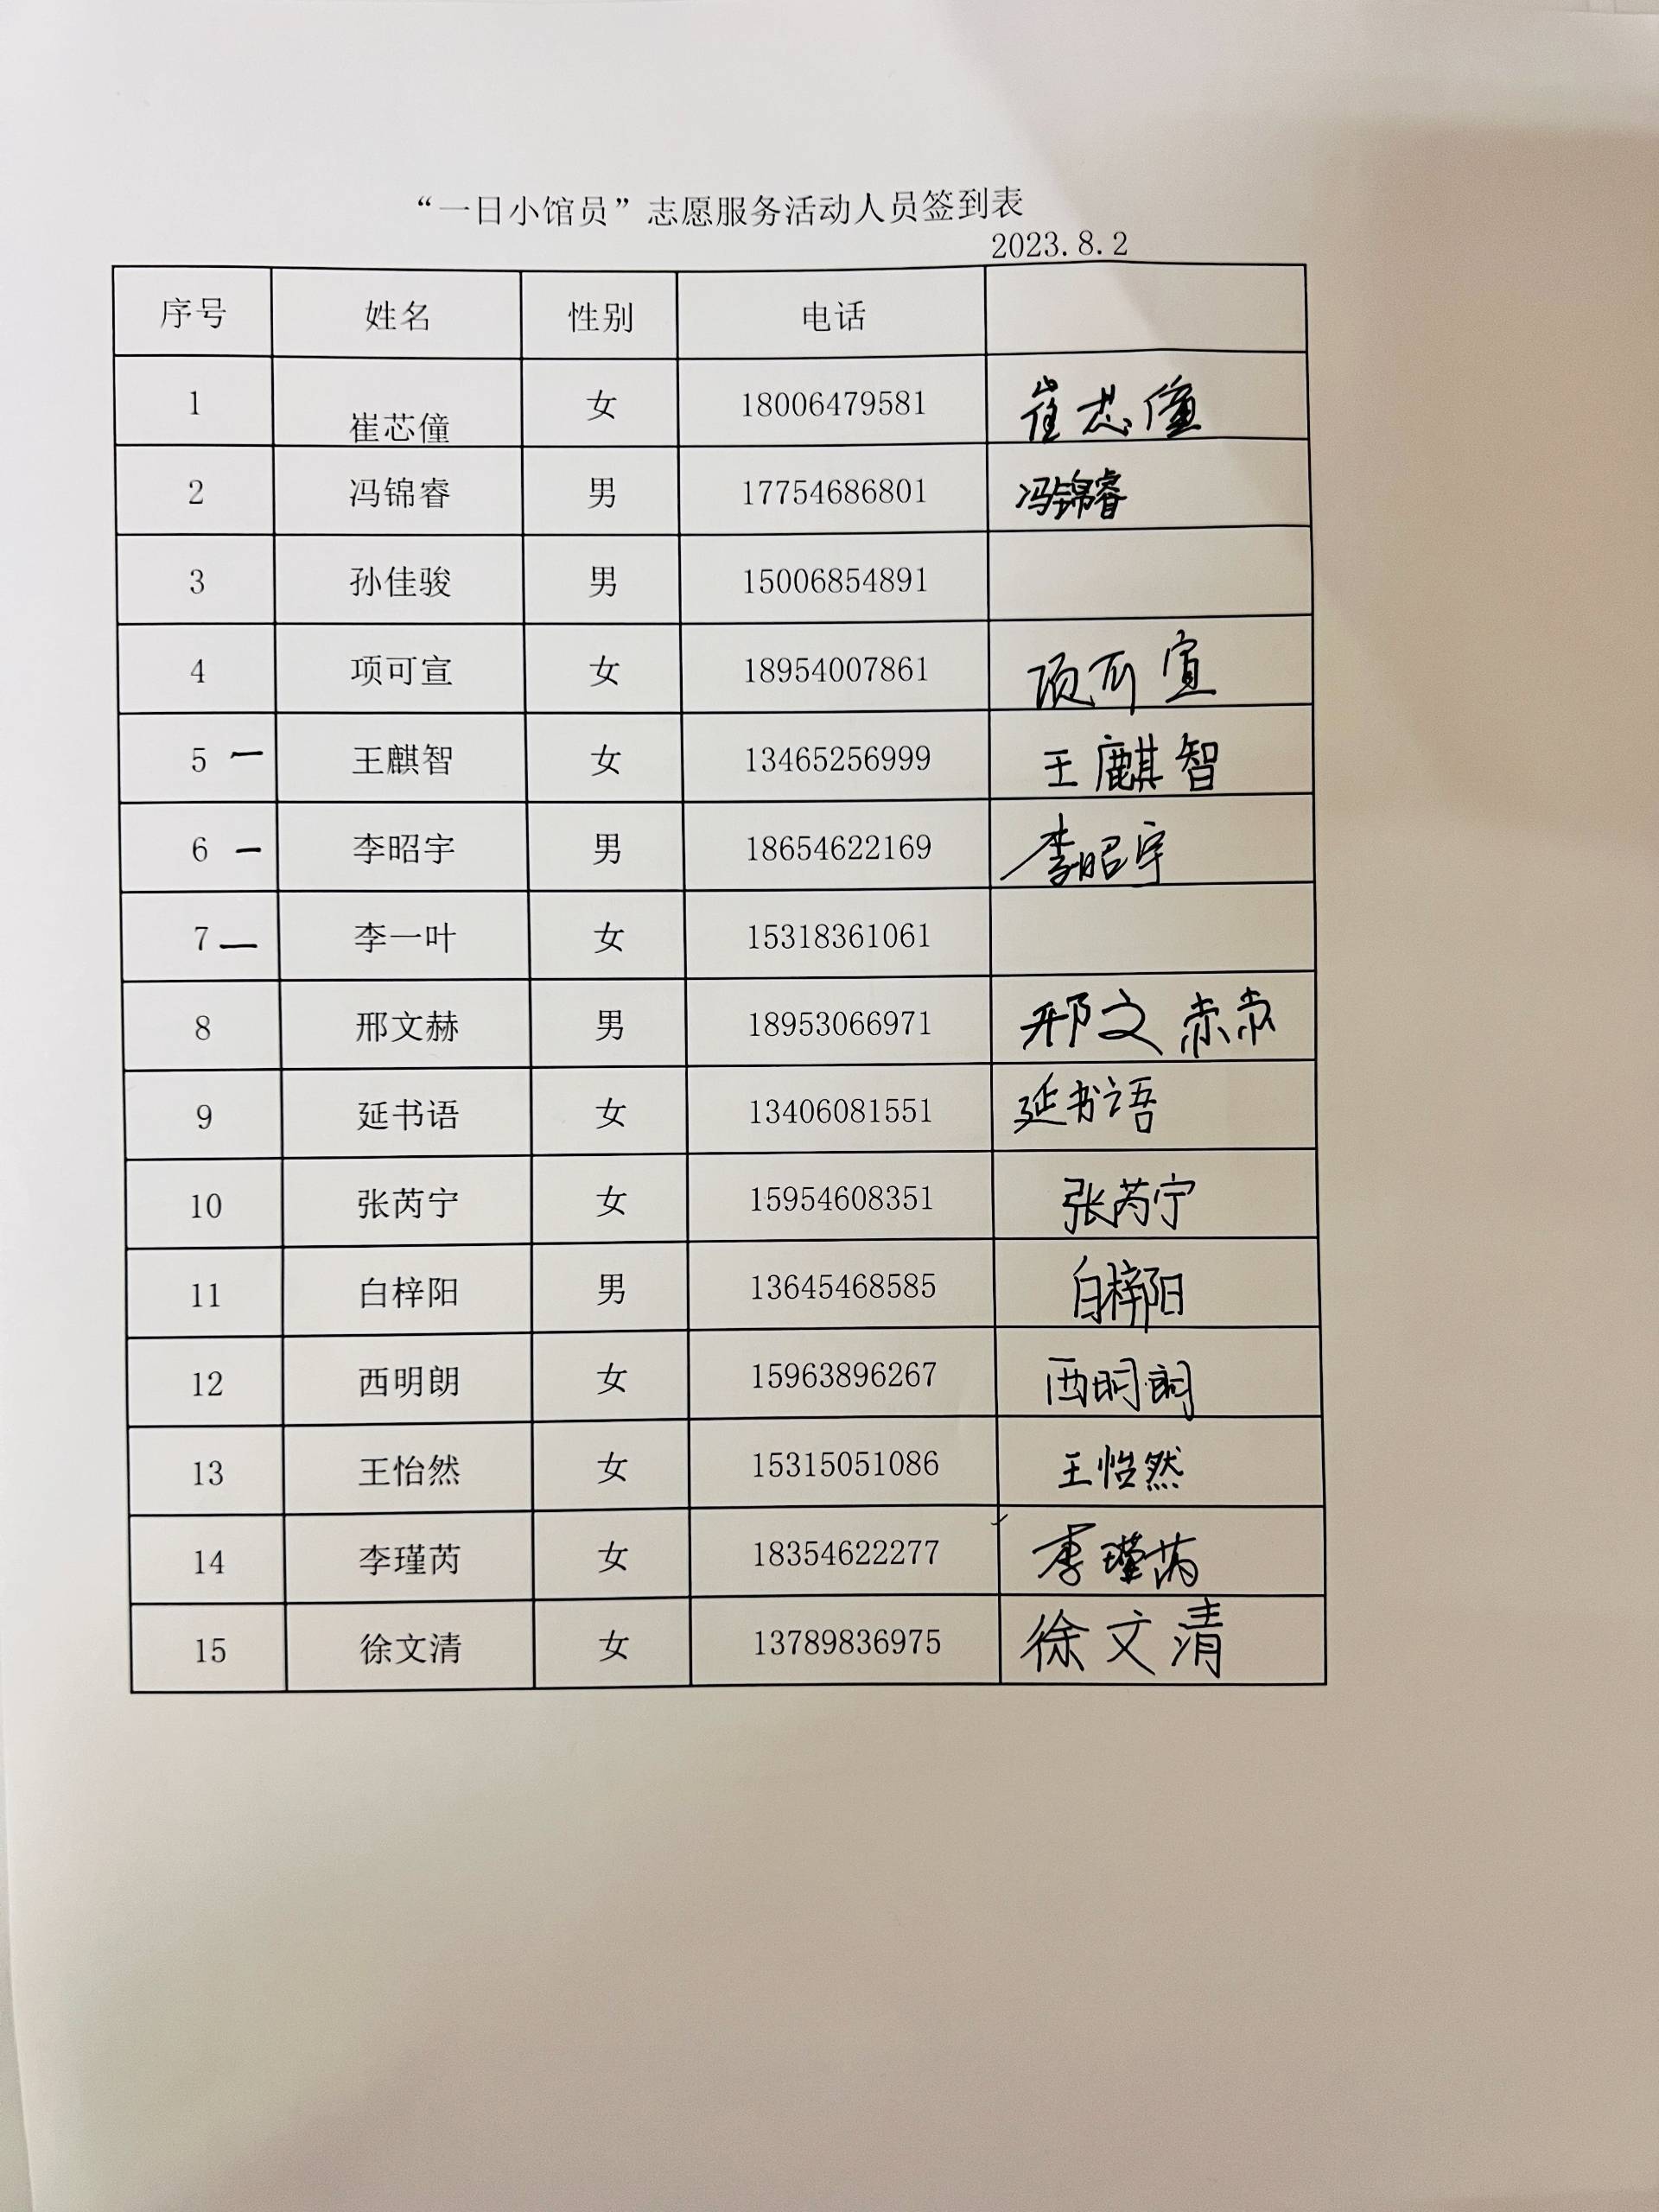 “一日小馆员”志愿服务活动人员签到表
2023.8.2
序号 姓名 性别 电话
1 崔芯僮 女 18006479581 崔芯僮
2 冯锦睿 男 17754686801 冯锦睿
3 孙佳骏 男 15006854891
4 项可宣 女 18954007861 项可宣
5 一 王麒智 女 13465256999 王麒智
6 一 李昭宇 男 18654622169 李昭宇
7 一 李一叶 女 15318361061
8 邢文赫 男 18953066971 邢文赫
9 延书语 女 13406081551 延书语
10 张芮宁 女 15954608351 张芮宁
11 白梓阳 男 13645468585 白梓阳
12 西明朗 女 15963896267 西明朗
13 王怡然 女 15315051086 王怡然
14 李瑾芮 女 18354622277 李瑾芮
15 徐文清 女 13789836975 徐文清